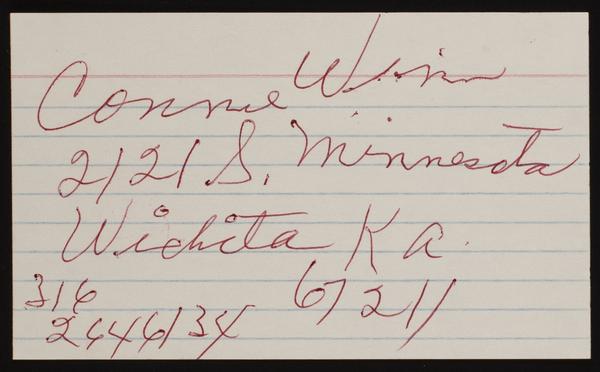 Connie Winn
2121 S. Minnesota
Wichita Ka.
316 67211
2646134